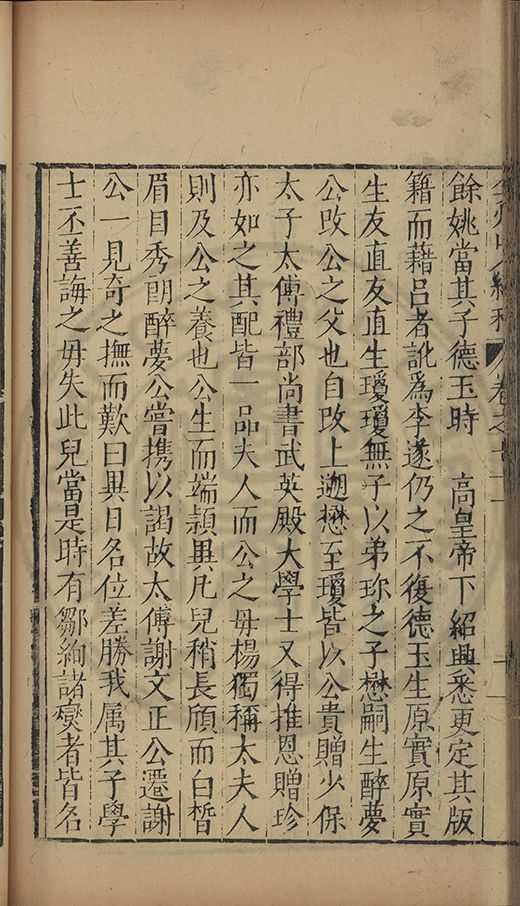 餘姚當其子德玉時　高皇帝下紹興悉更定其版
籍而藉呂者訛爲李遂仍之不復德玉生原實原實
生友直友直生瓊瓊無子以弟珎之子懋嗣生醉夢
公攺公之父也自攺上遡懋至瓊皆以公貴贈少保
太子太傅禮部尚書武英殿大學士又得推恩贈珍
亦如之其配皆一品夫人而公之毋楊獨稱太夫人
則及公之養也公生而端穎異凡兒稍長頎而白皙
眉目秀朗醉夢公嘗携以謁故太傅謝文正公遷謝
公一見奇之撫而歎曰異日名位差勝我属其子學
士丕善誨之毋失此兒當是時有鄒絢諸爕者皆名